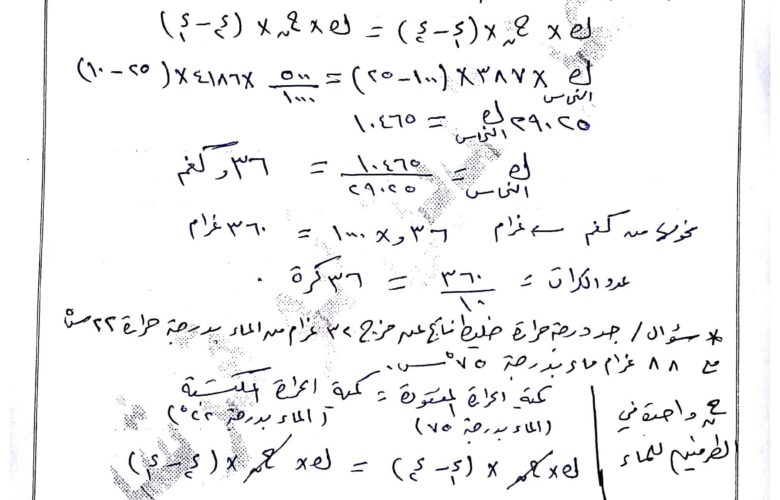 ك × حن × (د١ - د٢) = ك × حن × (د٢ - د١)
ك النحاس × ٣٨٧ × (١٠٠ - ٢٥) = ٥٠٠/١٠٠٠ × ٤١٨٦ × (٢٥ - ١٠)
٢٩٠٢٥ ك النحاس = ١٠٤٦٥
ك النحاس = ١٠٤٦٥/٢٩٠٢٥ = ٣٦و كغم
نحولها من كغم ← غرام ٣٦و × ١٠٠٠ = ٣٦٠ غرام
عدد الكرات = ٣٦٠/١٠ = ٣٦ كرة .
* سؤال / جد درجة حرارة خليط ناتج عن مزج ٣٢ غرام من الماء بدرجة حرارة ٢٢ س°
مع ٨٨ غرام ماء بدرجة ٧٥° س .
كمية الحرارة المفقودة = كمية الحرارة المكتسبة
(الماء بدرجة ٧٥) (الماء بدرجة ٢٢°)
حن واحدة في
الطرفين للماء
ك × حن × (د١ - د٢) = ك × حن × (د٢ - د١)